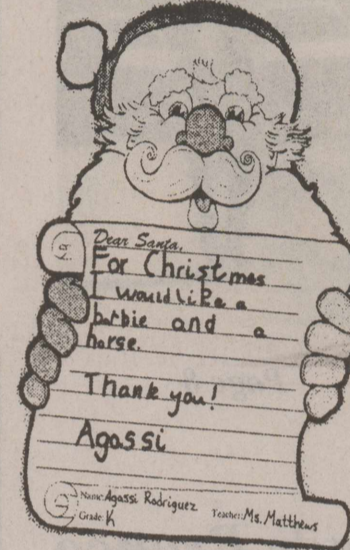 Dear Santa,
For Christmas
I would like a
barbie and a
horse.
Thank you!
Agassi
Name: Agassi Rodriguez
Grade: K Teacher: Ms. Matthews